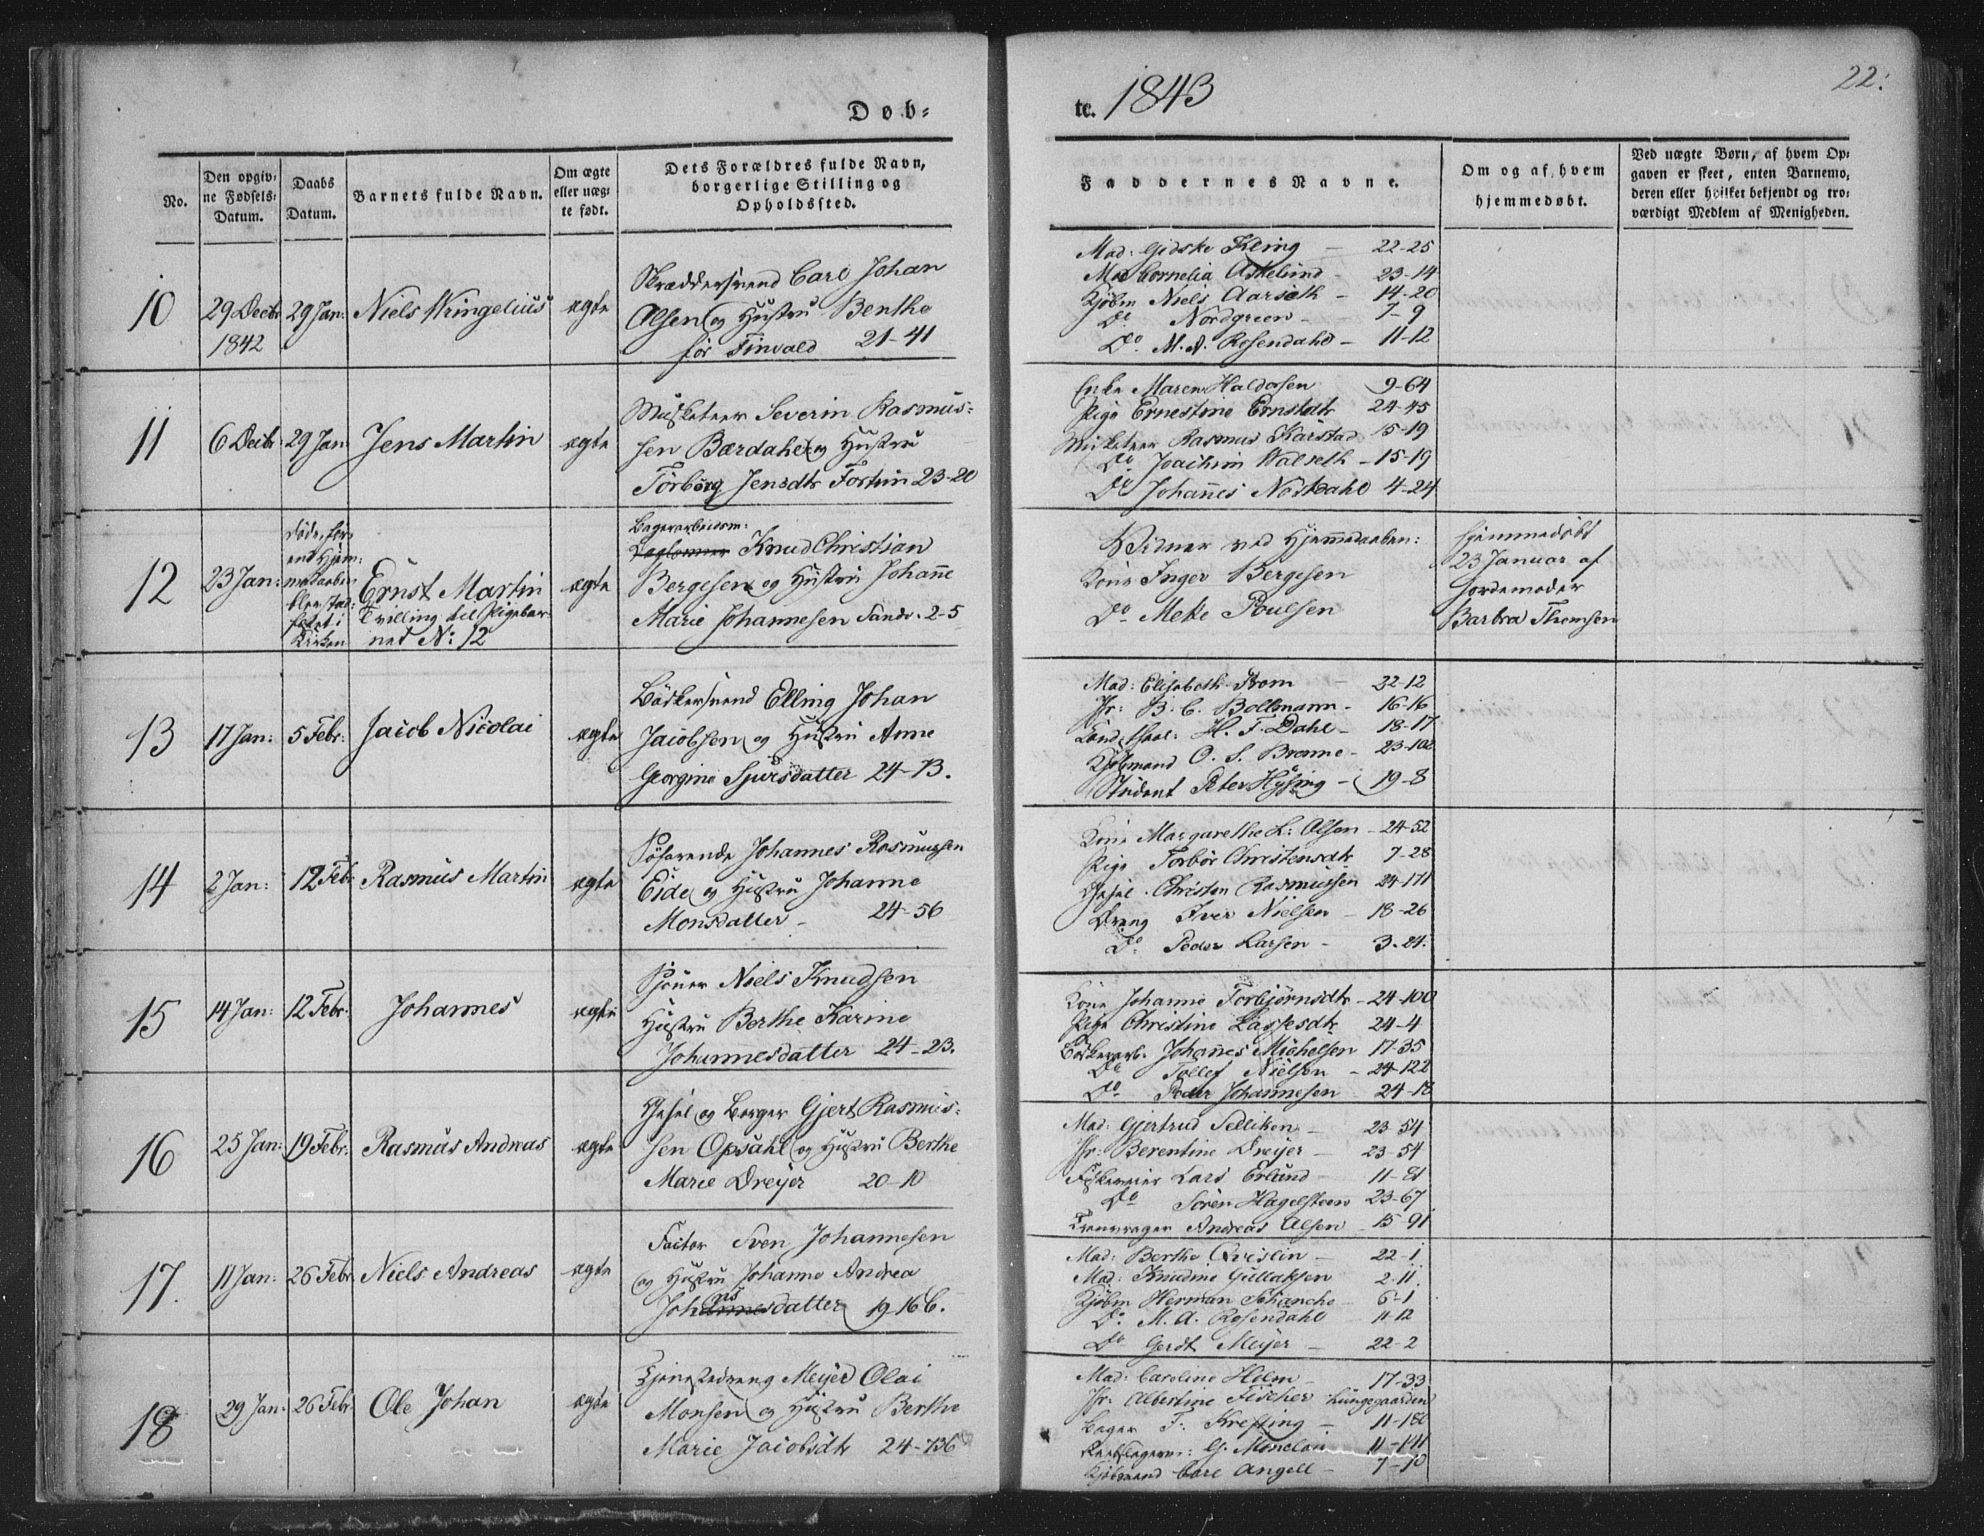 Døb=
te. 1843
22.
No.
Den opgiv=
ne Fødsels=
Datum.
Daabs
Datum.
Barnets fulde Navn.
Om ægte
eller uæg=
te født.
Dets Forældres fulde Navn,
borgerlige Stilling og
Opholdssted.
Faddernes Navne.
Om og af hvem
hjemmedøbt.
Ved uægte Børn, af hvem Op=
gaven er skeet, enten Barnemo=
deren eller hvilket bekjendt og tro=
værdigt Medlem af Menigheden.
10
29 Decbr
1842
29 Jan:
Niels Wringelius
ægte
Skræddersvend Carl Johan
Olsen og Hustru Benthe
för Finvald 21-41
Mad: Gidske Kling - 22-25
Mad Cornelia Askelund - 23-14
Kjøbm Niels Aarseth - 14-20
Do Nordgreen - 7-9
Do. M. A. Rosendahl - 11-12
11
6 Decbr
29 Jan
Jens Martin
ægte
Musketeer Severin Rasmus=
sen Bærdahl og Hustru
Torborg Jensdtr Fortun 23-20
Enke Maren Haldorsen 9-64
Pige Ernestine Ernstdtr 24-45
Musketeer Rasmus Karstad 15-19
Do Joachim Walseth - 15-19
Do Johan̄es Nosdahl 4-24
12
23 Jan:
døde, för
end Hjem=
medaaben
blev stad=
fæstet i
Kirken
Ernst Martin
Tvilling til Pigebar=
net N: 12
ægte
Bagerarbeidsm:
Knud Christian
Bergesen og Hustru Johan̄e
Marie Johannesen Sandv. 2-5
Vidner ved Hjem̄edaaben:
Kone Inger Bergesen
Do Meke Poulsen
Hjemmedöbt
23 Januar af
Jordemoder
Barbra Thomsen
13
17 Jan:
5 Febr:
Jacob Nicolai
ægte
Bödkersvend Elling Johan
Jacobsen og Hustru Anne
Georgine Sjursdatter 24-73.
Mad: Elisabeth Rom - 22-12
Jfr: B. C. Bollmann - 16-16
H. F. Dahl - 18-17
Kjøbmand O. S. Bronne - 23-102
Student Peter Hysing - 19-8
14
2 Jan:
12 Febr
Rasmus Martin
ægte
Söfarende Johannes Rasmussen
Eide og Hustru Johanne
Monsdatter - 24-56
Kone Margarethe L: Olsen - 24-52
Pige Torbör Christensdtr 7-28
Christen Rasmussen 24-171
Dreng Iver Nielsen - 18-26
Do Peder Larsen - 3-24.
15
14 Jan:
12 Febr:
Johannes
ægte
Niels Knudsen
Hustru Berthe Karine
Johannesdatter 24-23.
Kone Johanne Torbjörnsdtr - 24-100
Pige Christine Lassesdtr 24-4
Bödkerarb. Johan̄es Michelsen 17-35
Do Tollef Nielsen - 24-122
Do Peder Johannesen - 24-18
16
25 Jan:
19 Febr.
Rasmus Andreas
ægte
og Borger Gjert Rasmus=
sen Opsahl og Hustru Berthe
Marie Dreyer 20-10
Mad: Gjertrud Selliken - 23-54
Jfr: Berentine Dreyer - 23-54
Lars Erlund - 11-81
Do Sören Hagelsteen 23-67
Andreas Olsen - 15-91
17.
11 Jan:
26 Febr.
Niels Andreas
ægte
Factor Sven Johannesen
og Hustru Johanne Andrea
Johnsdatter 19.16 b.
Mad: Berthe Qvislin - 22-1
Mad: Knudine Gullaksen 2-11.
Kjøbm Herman Schanche - 6-1
Do. M. A. Rosendahl 11-12
Do Gerdt Meijer - 22-2
18
29 Jan:
26 Febr.
Ole Johan
ægte
Tjenestedreng Meyer Olai
Monsen og Hustru Berthe
Marie Jacobsdtr 24-136
Mad: Caroline Holm - 17-33
Jfr: Albertine Fischer Lungegaarden
Bager F. Krefting - 11-180
G. Monclair 11-141
Kjøbmand Carl Angell - 7-10